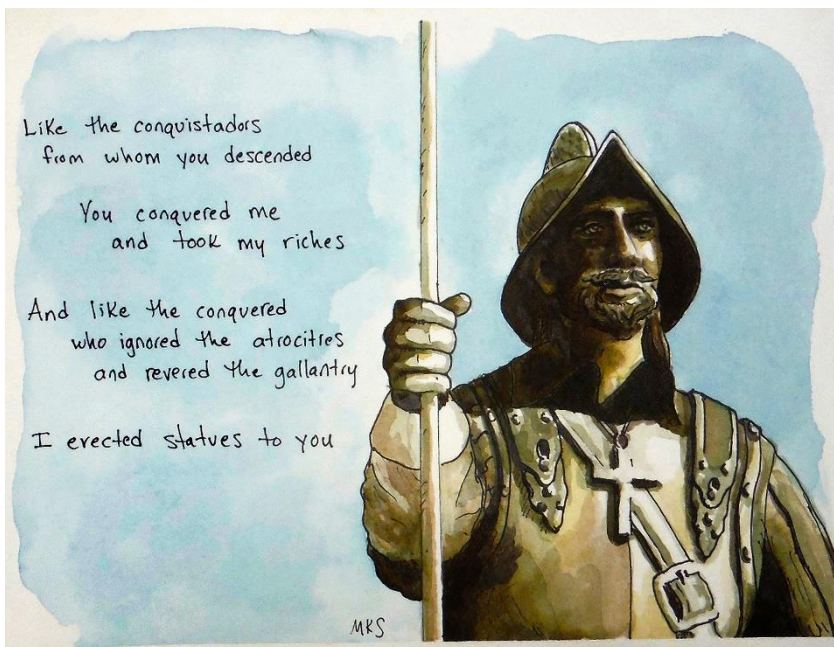 Like the conquistadors
from whom you descended
You conquered me
and took my riches
And like the conquered
who ignored the atrocities
and revered the gallantry
I erected statues to you
MKS